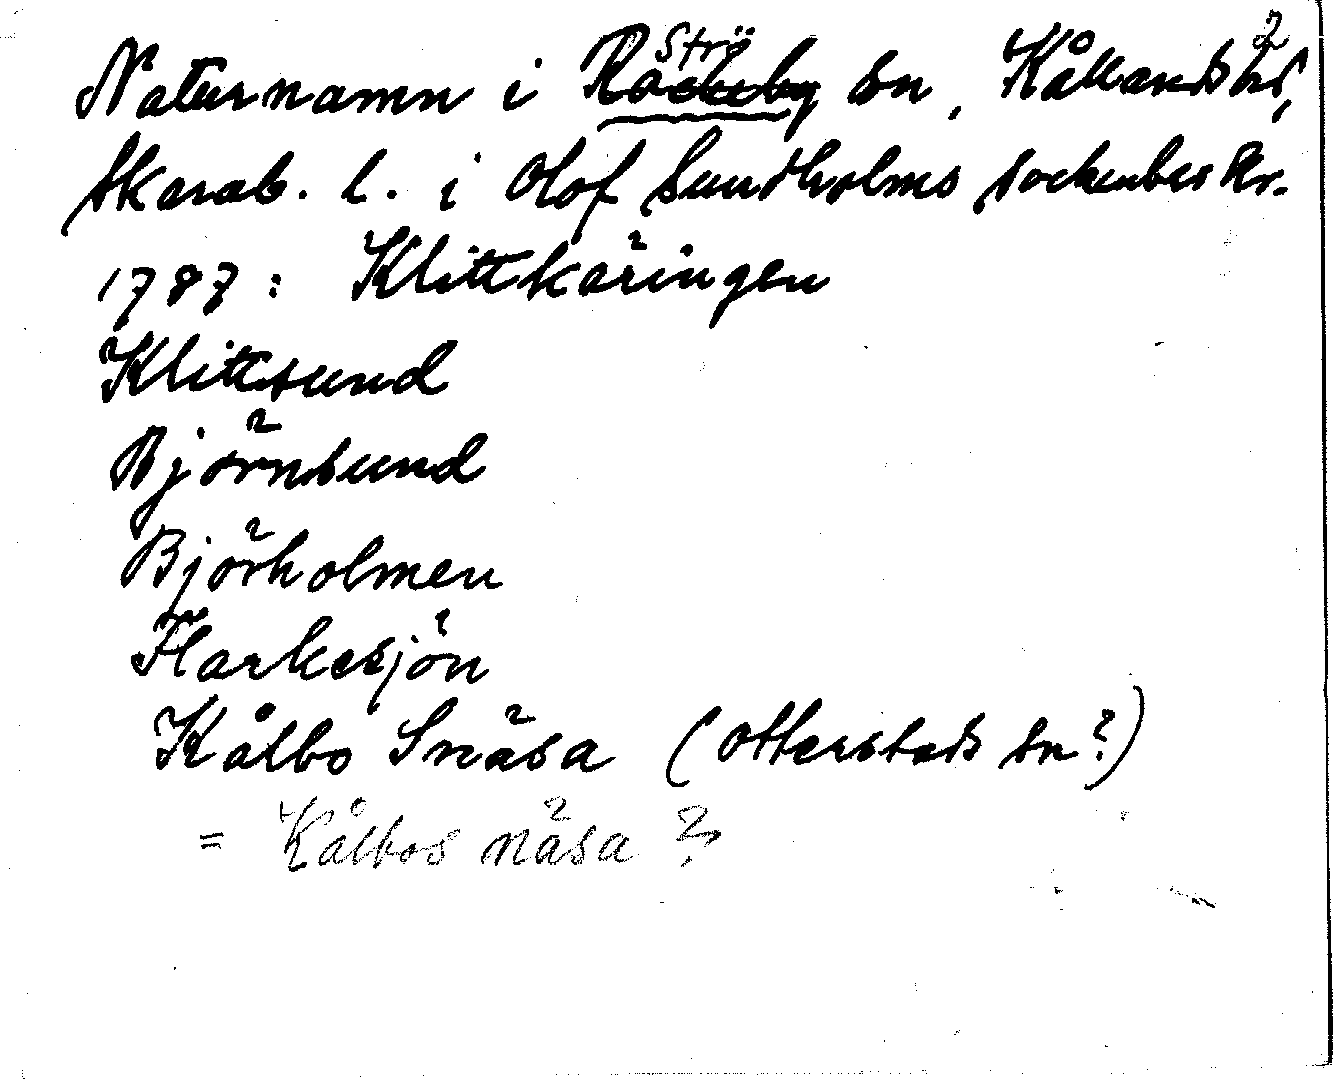 Naturnamn i Råckeby Strö sn, Kållands hd,
Skarab. l. i Olof Sundholms sockenbeskr.
1787: Klittkäringen
Klittsund
Björnsund
Björholmen
Harkesjön
Kålbo Snäsa (Otterstads sn?)
= Kålbos näsa?